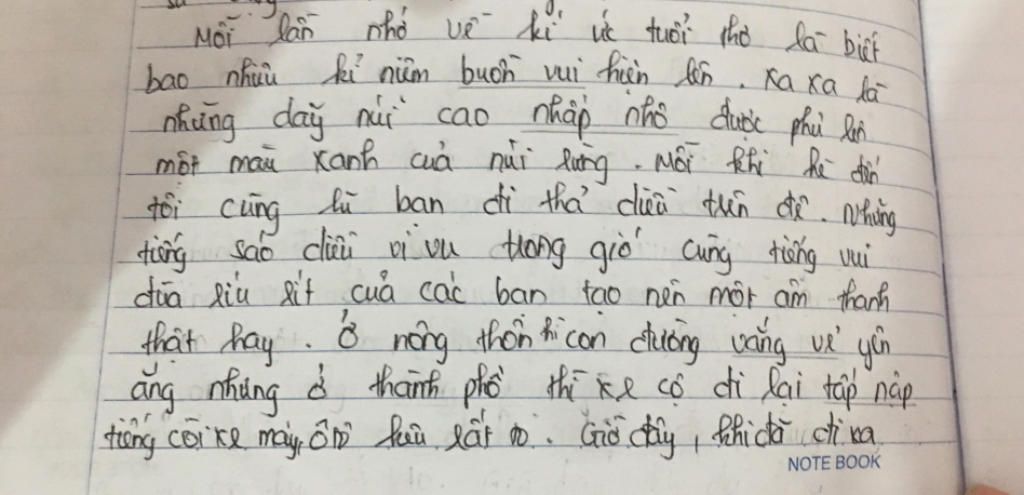 Mỗi lần nhớ về kí ức tuổi thơ là biết
bao nhiêu kỉ niệm buồn vui hiện lên. Xa xa là
những dãy núi cao nhấp nhô được phủ lên
một màu xanh của núi rừng. Mỗi khi hè đến
tôi cùng lũ bạn đi thả diều trên đê. Những
tiếng sáo diều vi vu trong gió cùng tiếng vui
đùa ríu rít của các bạn tạo nên một âm thanh
thật hay. Ở nông thôn thì con đường vắng vẻ yên
ắng nhưng ở thành phố thì xe cộ đi lại tấp nập
tiếng còi xe máy, ô tô kêu rất to. Giờ đây, khi đã đi xa
NOTE BOOK